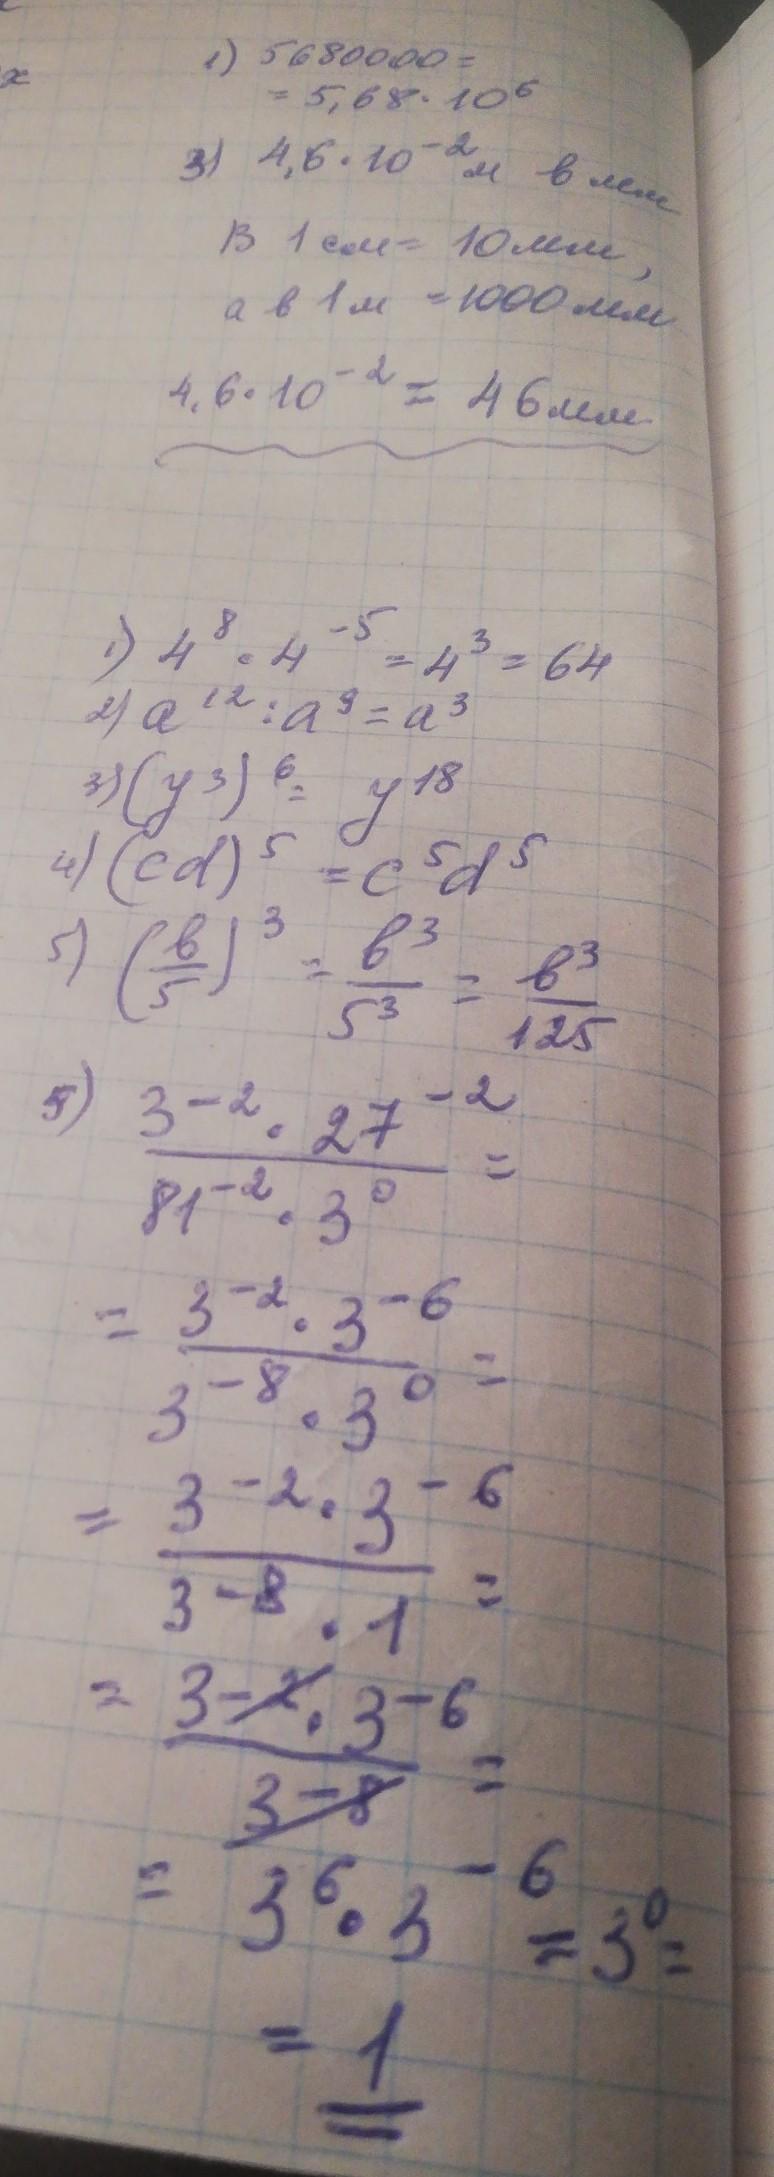 х
1) 5680000 =
= 5,68 · 10⁶
3) 4,6 · 10⁻² м в мм
В 1 см = 10 мм,
а в 1 м = 1000 мм
4,6 · 10⁻² = 46 мм
1) 4⁸ · 4⁻⁵ = 4³ = 64
2) a¹² : a⁹ = a³
3) (y³)⁶ = y¹⁸
4) (cd)⁵ = c⁵d⁵
5) (в/5)³ = в³/5³ = в³/125
5) 3⁻² · 27⁻² / 81⁻² · 3⁰ =
= 3⁻² · 3⁻⁶ / 3⁻⁸ · 3⁰ =
= 3⁻² · 3⁻⁶ / 3⁻⁸ · 1 =
= 3⁻² · 3⁻⁶ / 3⁻⁸ =
= 3⁶ · 3⁻⁶ = 3⁰ =
= 1